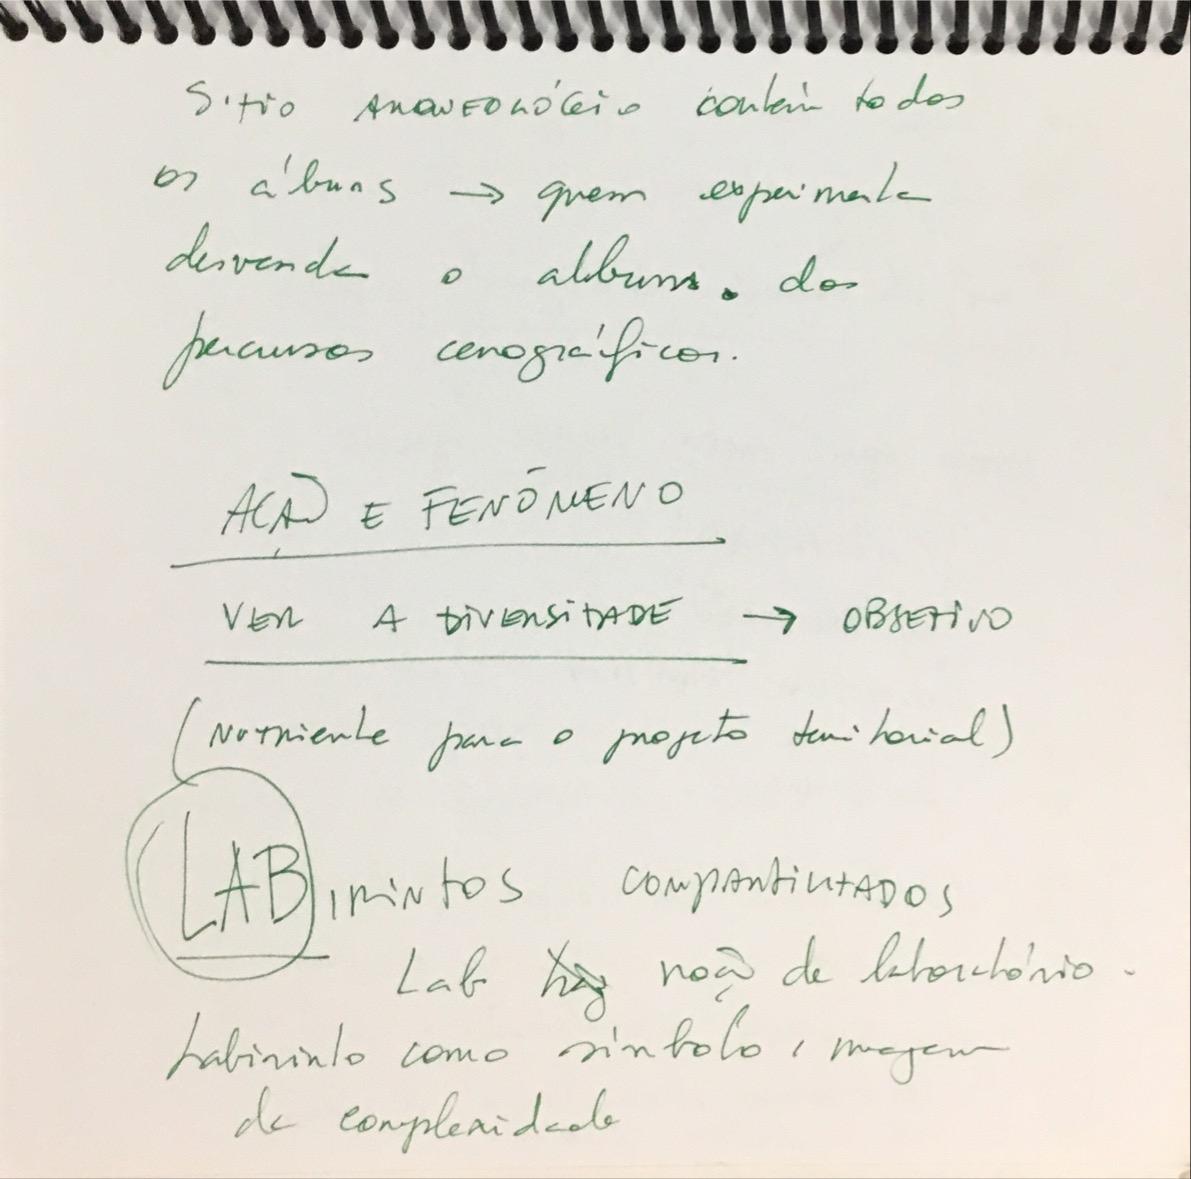 Sitio ARQUEOLÓGICO contém todos
os álbuns → quem experimenta
desvenda o albuns. dos
percursos cenográficos.
AÇÃO E FENÔMENO
VER A DIVERSIDADE → OBJETIVO
(Nutriente para o projeto territorial)
LABIRINTOS COMPARTILHADOS
Lab noção de laboratório.
Labirinto como símbolo, imagem
da complexidade